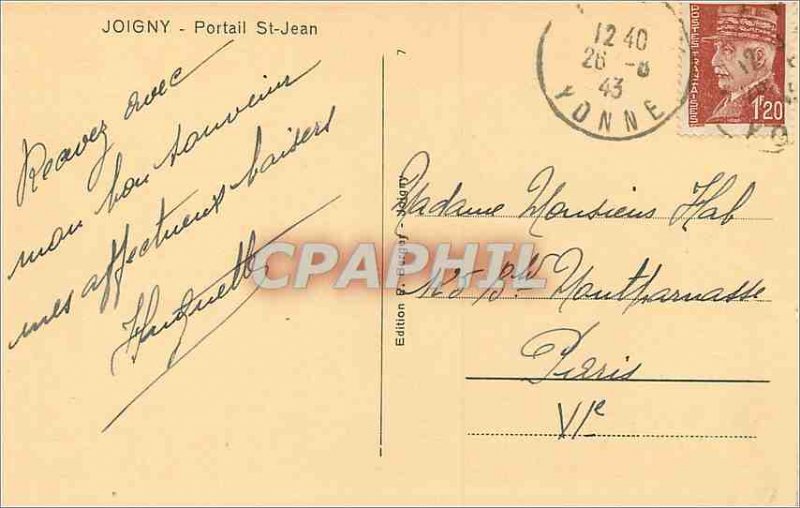 JOIGNY - Portail St-Jean
7
12 40
26 -8
43
YONNE
POSTES FRANÇAISES
1F20
Recevez avec
mon bon souvenir
mes affectueux baisers
Huguette
CPAPHIL
Edition P. Berger - Joigny
Madame Monsieur Hab
125 Bd Montparnasse
Paris
VIe